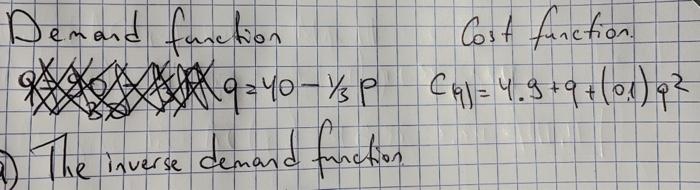 Demand function Cost function.
q = 40 - 1/3 p C(q) = 4.9 + q + (0.1) q²
a) The inverse demand function